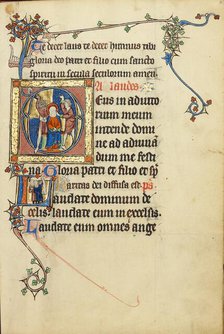 Te decet laus te decet hymnus tibi
gloria deo patri et filio cum sancto
spiritu in secula seculorum amen
A laudes
Deus in adiuto
rium meum
intende domi
ne ad adiuuā
dum me festi
na Gloria patri et filio et sp̄
aritas dei diffusa est ps
Laudate dominum de
celis laudate eum in excelsis
Laudate eum omnes ange